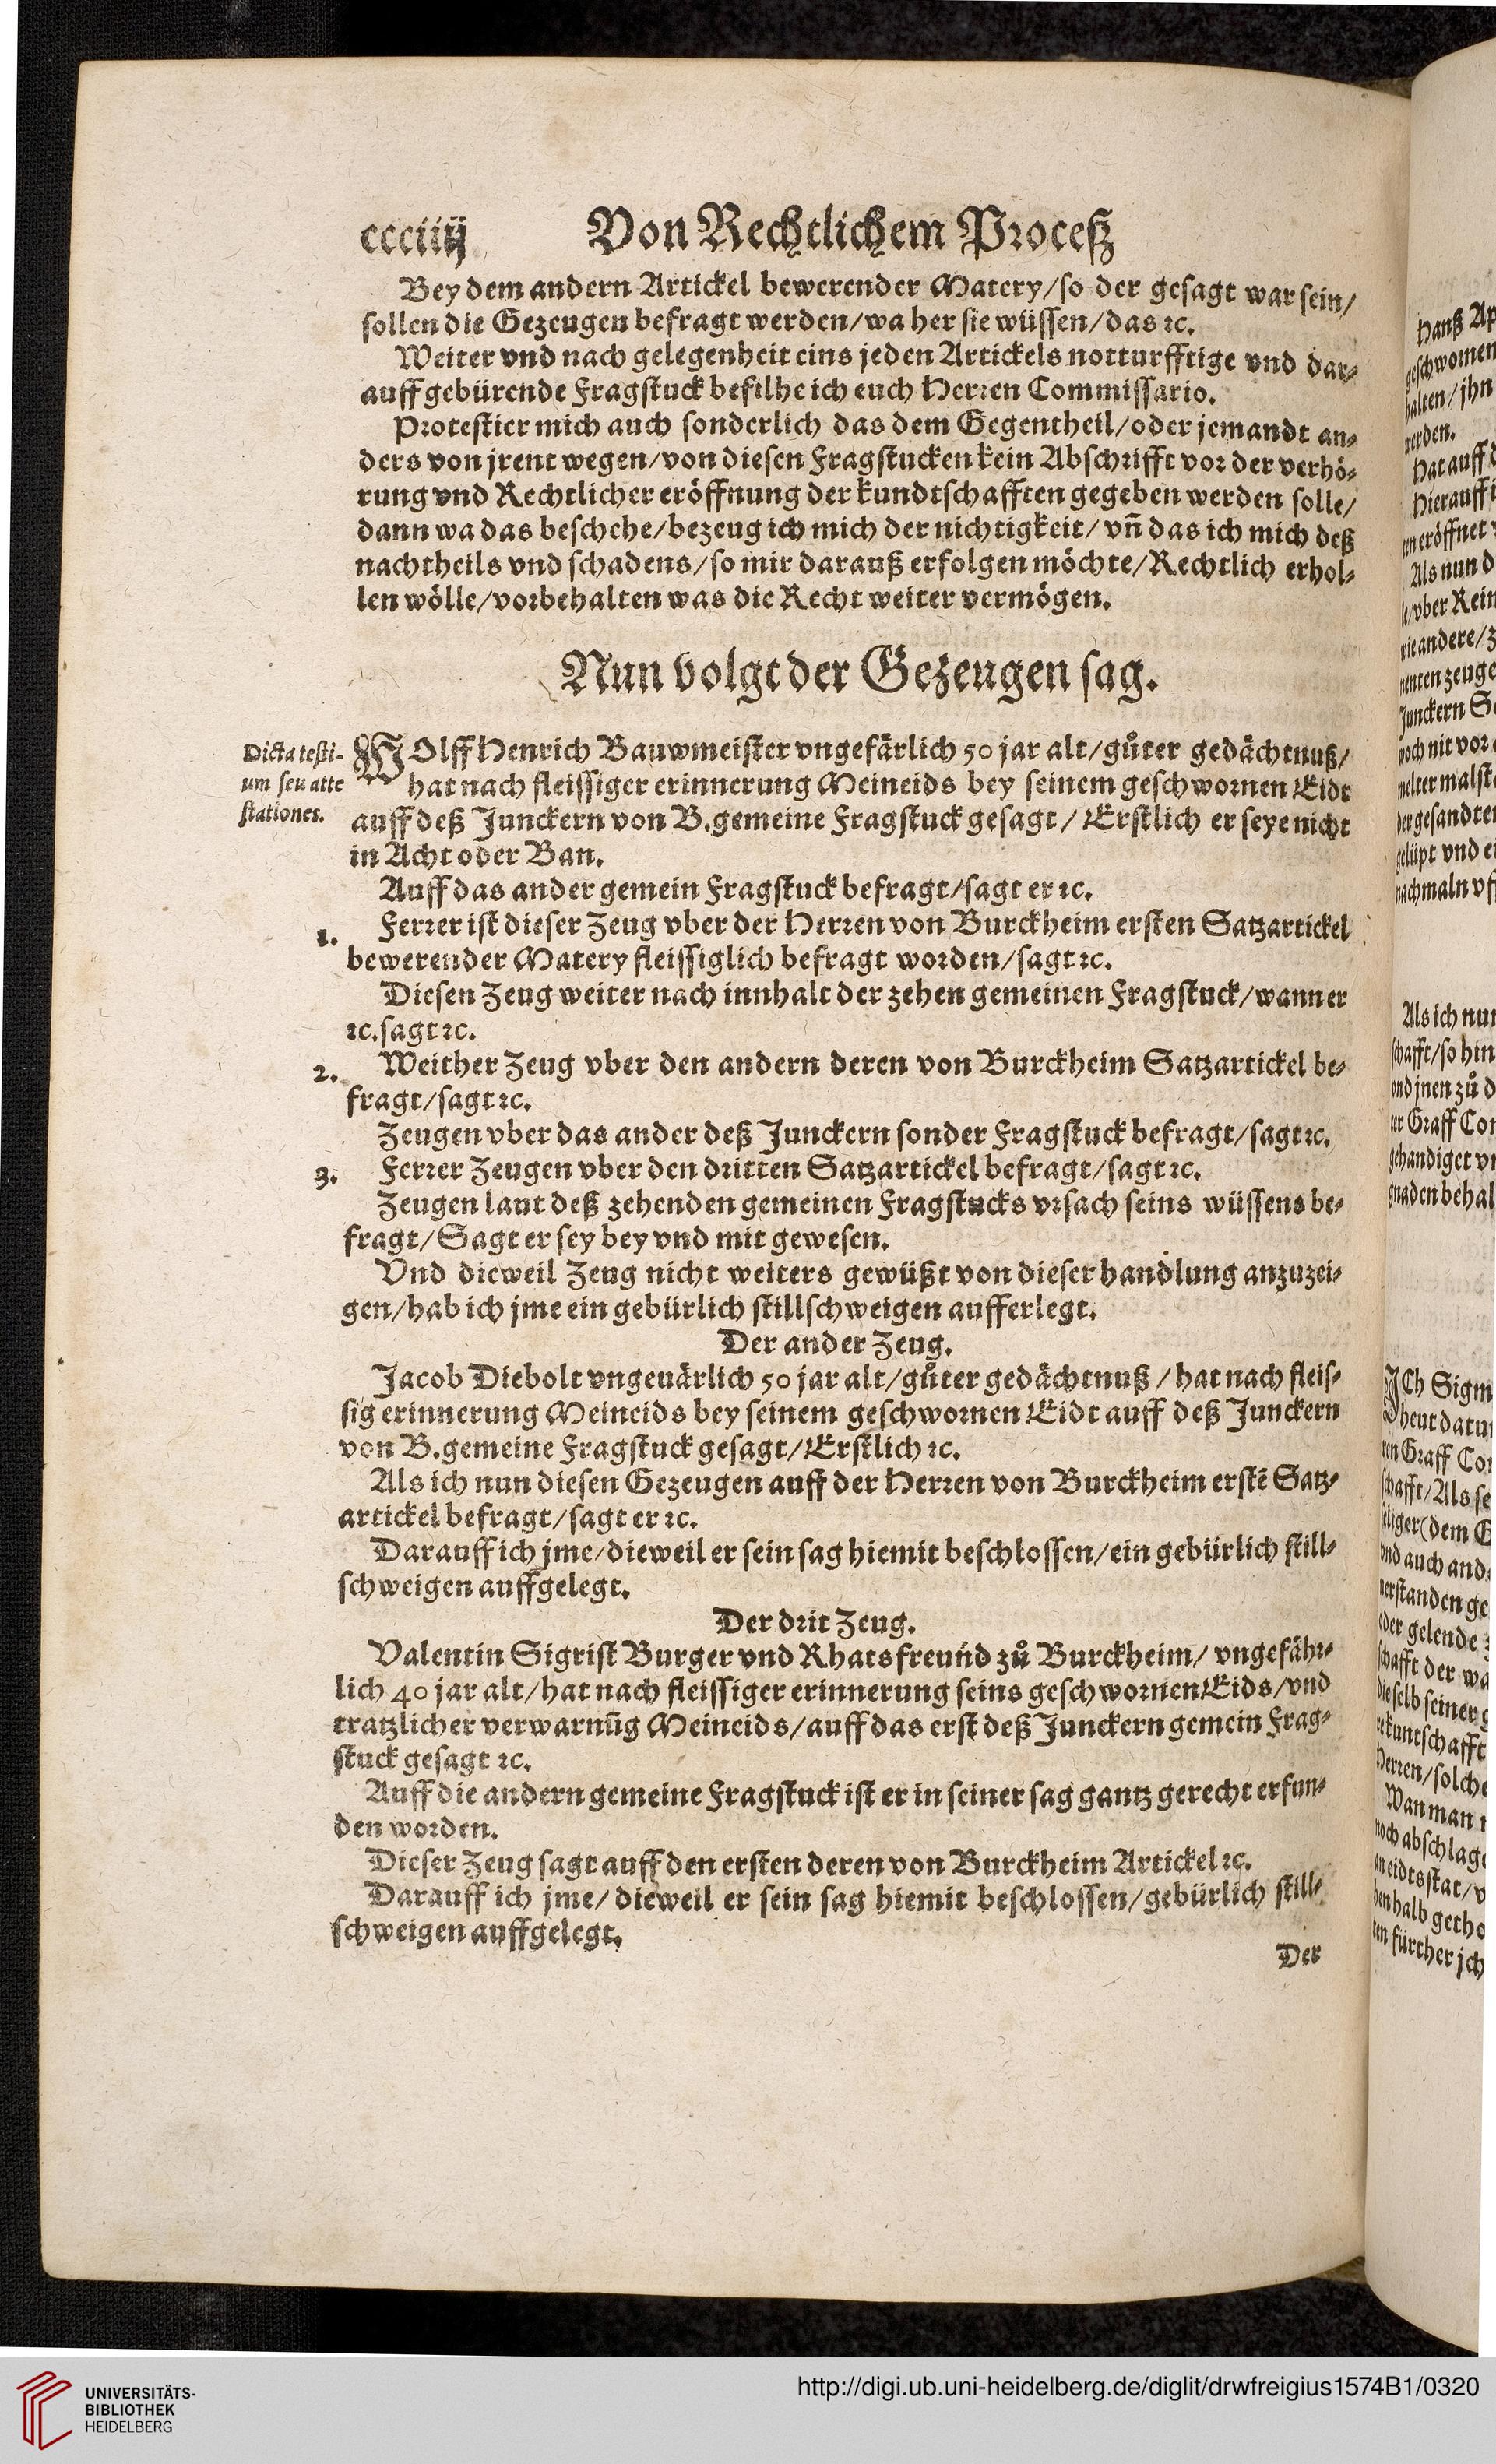 ccciiij Von Rechtlichem Proceß
Bey dem andern Artickel bewerender Matery/so der gesagt war sein/
sollen die Gezeugen befragt werden/wa her sie wüssen/das ꝛc.
Weiter vnd nach gelegenheit eins jeden Artickels notturfftige vnd dar⸗
auff gebürende Fragstuck befilhe ich euch Herren Commissario.
Protestier mich auch sonderlich das dem Gegentheil/oder jemandt an⸗
ders von jrent wegen/von diesen Fragstucken kein Abschrifft vor der verhö⸗
rung vnd Rechtlicher eröffnung der kundtschafften gegeben werden solle/
dann wa das beschehe/bezeug ich mich der nichtigkeit/ vñ das ich mich deß
nachtheils vnd schadens/so mir darauß erfolgen möchte/Rechtlich erhol⸗
len wölle/vorbehalten was die Recht weiter vermögen.
Nun volgt der Gezeugen sag.
Dicta testi-
um seu atte
stationes.
WOlff Henrich Bauwmeister vngefärlich 50 jar alt/gůter gedächtnuß/
hat nach fleissiger erinnerung Meineids bey seinem geschwornen Eidt
auff deß Junckern von B. gemeine Fragstuck gesagt / Erstlich er seye nicht
in Acht oder Ban.
Auff das ander gemein Fragstuck befragt/sagt er ꝛc.
1. Ferrer ist dieser Zeug vber der Herren von Burckheim ersten Satzartickel
bewerender Matery fleissiglich befragt worden/sagt ꝛc.
Diesen Zeug weiter nach innhalt der zehen gemeinen Fragstuck/wann er
ꝛc. sagt ꝛc.
2. Weither Zeug vber den andern deren von Burckheim Satzartickel be⸗
fragt/sagt ꝛc.
Zeugen vber das ander deß Junckern sonder Fragstuck befragt/sagt ꝛc.
3. Ferrer Zeugen vber den dritten Satzartickel befragt/sagt ꝛc.
Zeugen laut deß zehenden gemeinen Fragstucks vrsach seins wüssens be⸗
fragt/Sagt er sey bey vnd mit gewesen.
Vnd dieweil Zeug nicht weiters gewüßt von dieser handlung anzuzei⸗
gen/hab ich jme ein gebürlich stillschweigen aufferlegt.
Der ander Zeug.
Jacob Diebolt vngeuärlich 50 jar alt/gůter gedächtnuß / hat nach fleis⸗
sig erinnerung Meineids bey seinem geschwornen Eidt auff deß Junckern
von B. gemeine Fragstuck gesagt/Erstlich ꝛc.
Als ich nun diesen Gezeugen auff der Herren von Burckheim erstē Satz⸗
artickel befragt/sagt er ꝛc.
Darauff ich jme/dieweil er sein sag hiemit beschlossen/ein gebürlich still⸗
schweigen auffgelegt.
Der drit Zeug.
Valentin Sigrist Burger vnd Rhatsfreund zů Burckheim/ vngefähr⸗
lich 40 jar alt/hat nach fleissiger erinnerung seins geschwornen Eids/vnd
tratzlicher verwarnūg Meineids/auff das erst deß Junckern gemein Frag⸗
stuck gesagt ꝛc.
Auff die andern gemeine Fragstuck ist er in seiner sag gantz gerecht erfun⸗
den worden.
Dieser Zeug sagt auff den ersten deren von Burckheim Artickel ꝛc.
Darauff ich jme/ dieweil er sein sag hiemit beschlossen/gebürlich still⸗
schweigen auffgelegt.
Der
Hanß
geschwornen
halten/jhn
werden.
Hat auff
Hierauff
eröffnet
Als nun
vber
andere/
zeuge
Junckern
noch nit vor
der gesandten
gelüpt vnd
nachmaln
Als ich nun
schafft/so
vnd jnen zů
Graff
gehandiget
gnaden
JCh
heut
Graff
schafft/Als
seliger (dem
vnd auch
verstanden
oder gelende
schafft der
dieselb seiner
Herren/solche
Wan man
noch
halb
fürther jch
UNIVERSITÄTS-
BIBLIOTHEK
HEIDELBERG
http://digi.ub.uni-heidelberg.de/diglit/drwfreigius1574B1/0320